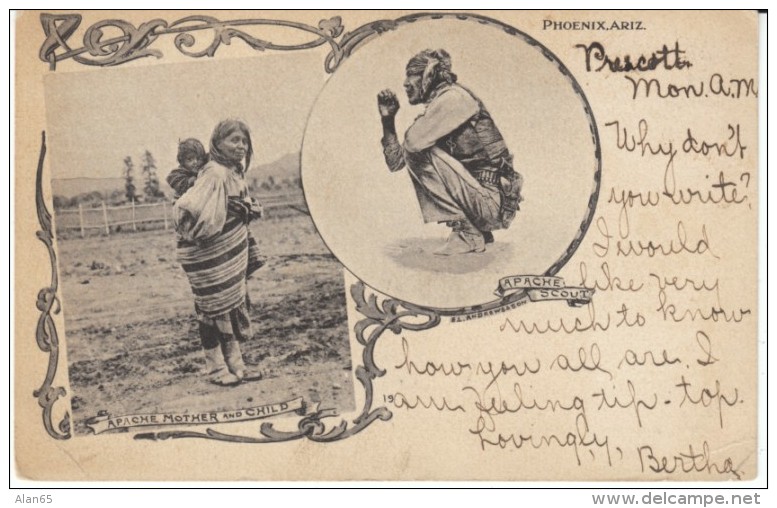 PHOENIX, ARIZ.
Prescott.
Mon. A.M
Why don't
you write?
I would
like very
much to know
how you all are. I
am feeling tip-top.
Lovingly,
Bertha.
APACHE
SCOUT
APACHE MOTHER AND CHILD
19
Alan65
delcampe.net